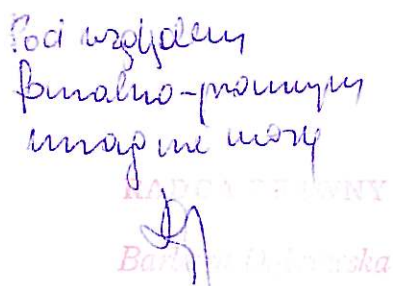 Pod względem
formalno-prawnym
uwag nie wnoszę
RADCA PRAWNY
Barbara